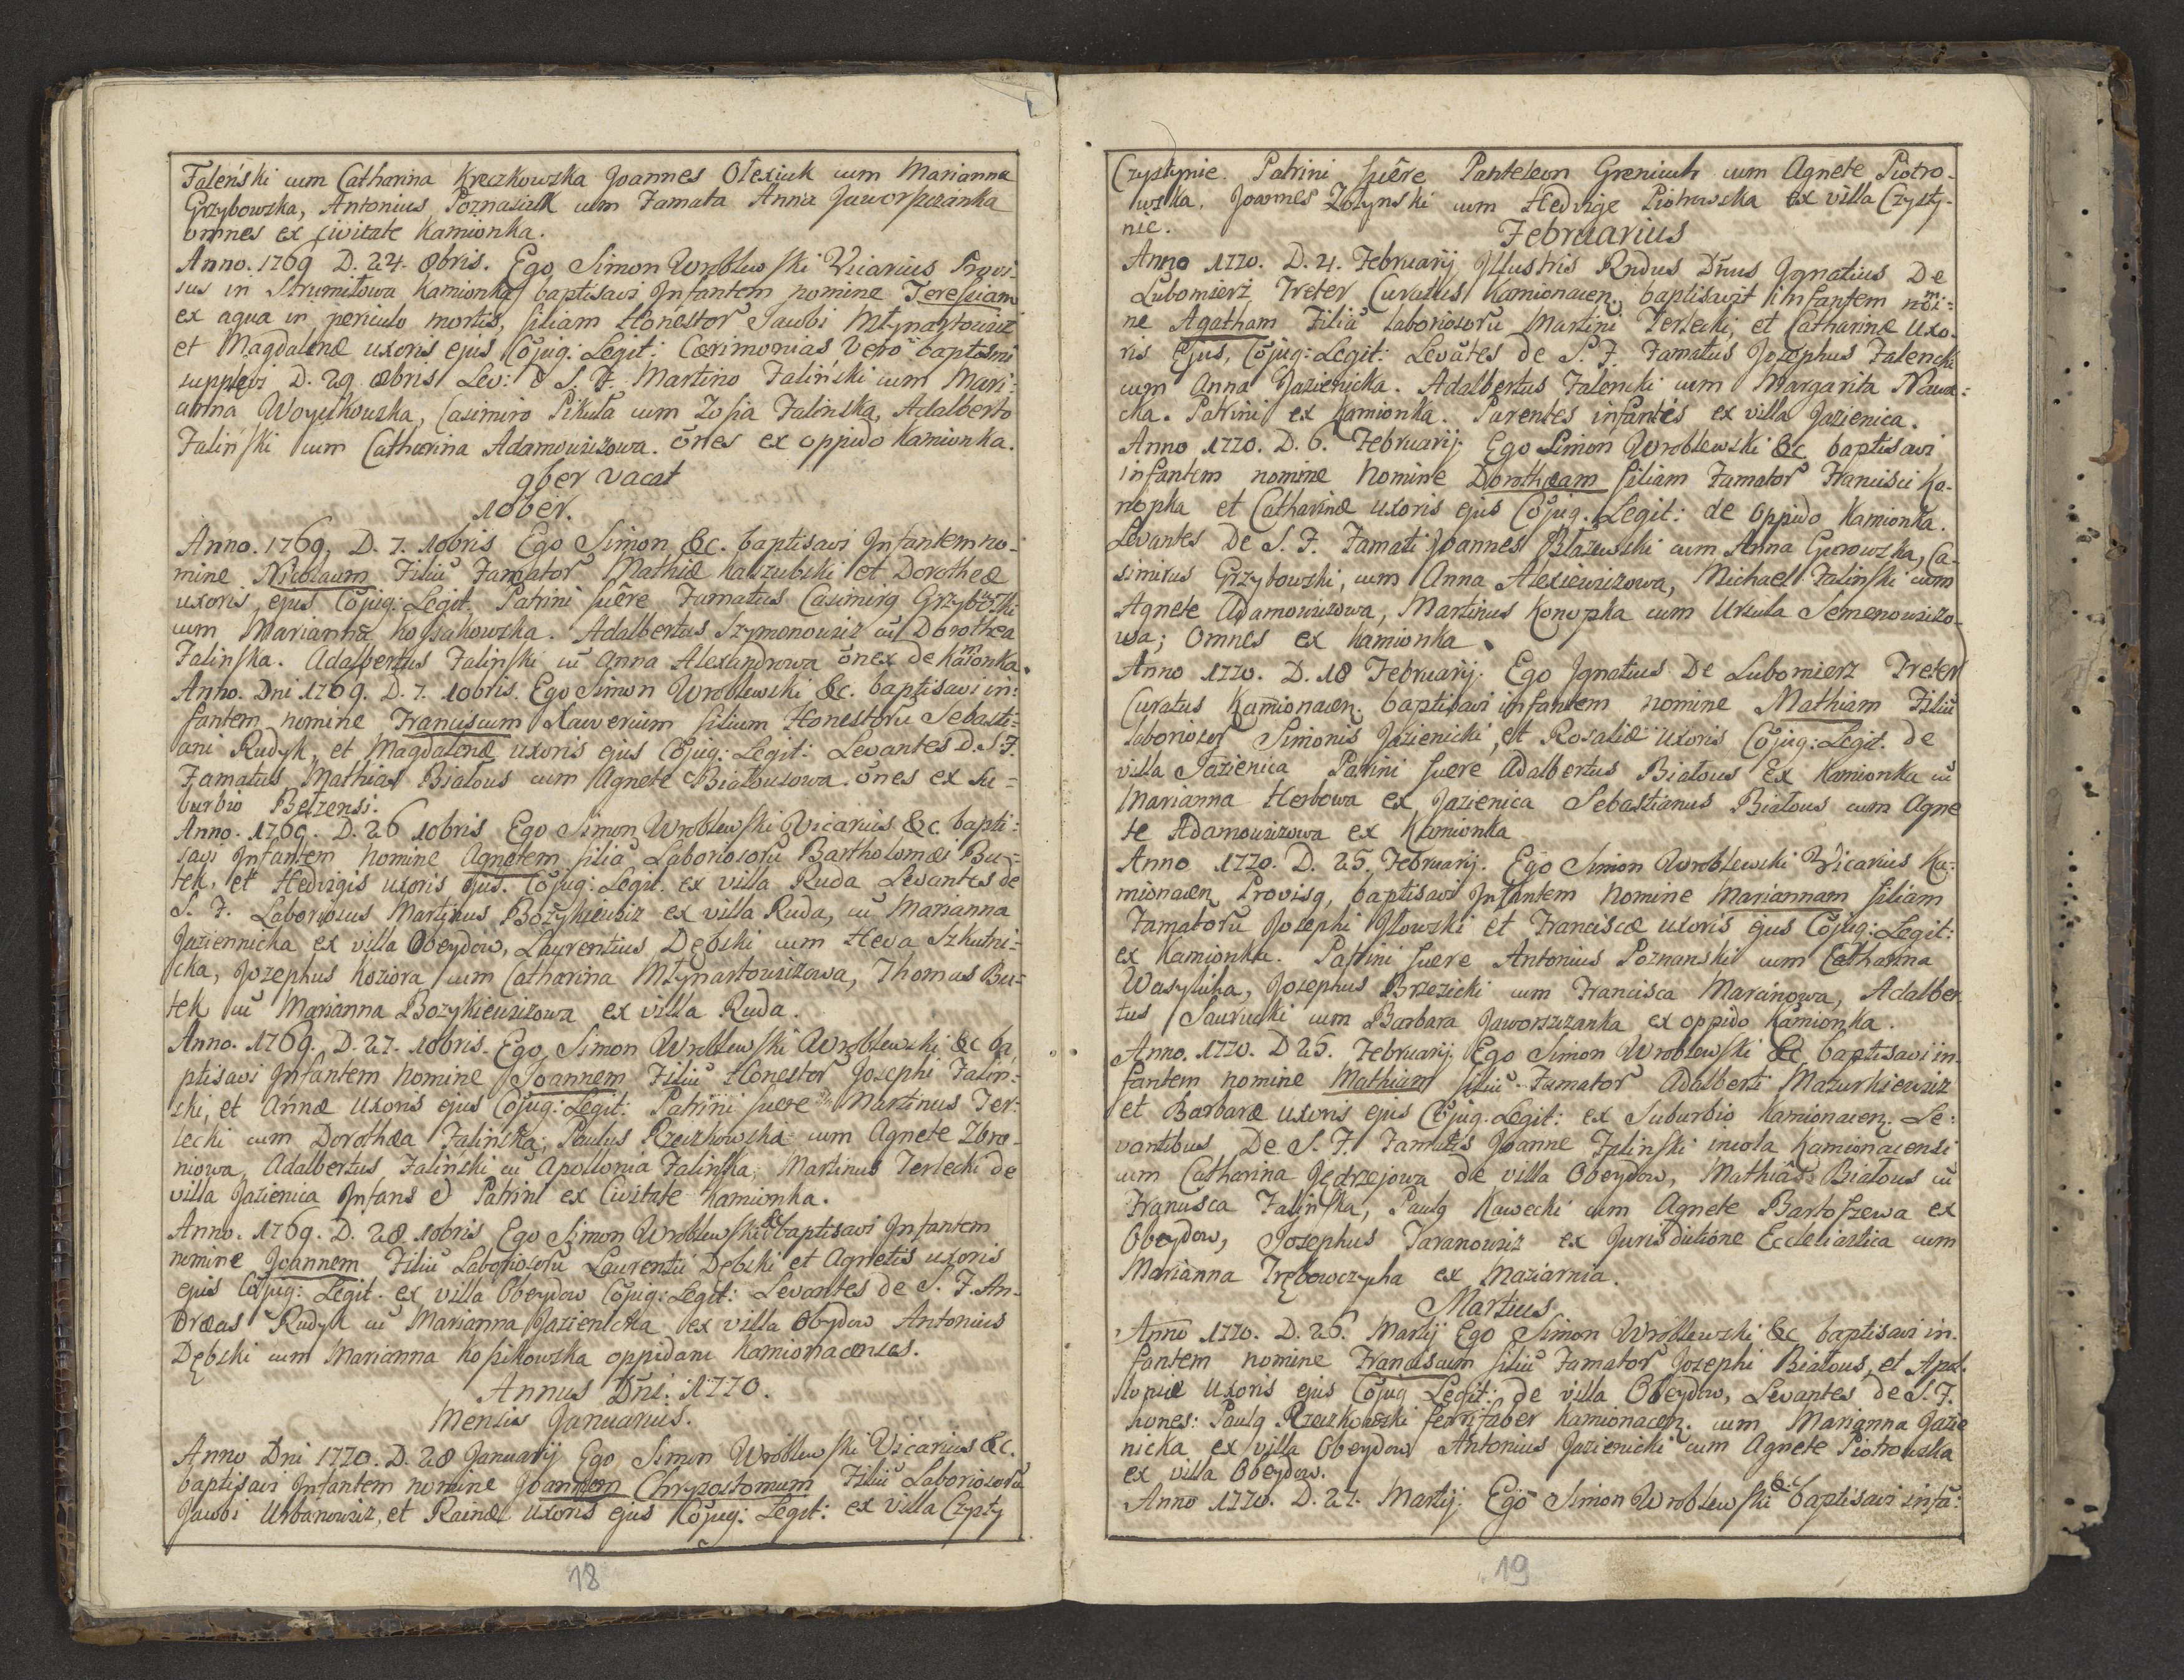 Faleński cum Catharina Kreczkowska Joannes Olexiuk cum Marianna
Grzybowska, Antonius Poznasiak cum Famata Anna Jaworszczanka
omnes ex civitate Kamionka.
Anno. 1769 D. 24. 8bris. Ego Simon Wroblewski Vicarius Provi-
sus in Strumiłowa Kamionka baptisavi Infantem nomine Teressiam
ex aqua in periculo mortis, filiam Honestor Jacobi Młynartowicz
et Magdalenæ uxoris ejus Cõjug: Legit: Cærimonias Vero baptismi
supplevi D. 29 8bris Lev: d S. F. Martino Faliński cum Mari-
anna Woyczkowska, Casimiro Pikuła cum Zofia Falinska, Adalberto
Faliński cum Catharina Adamowiczowa. õnes ex oppido Kamionka.
9ber vacat
10ber.
Anno. 1769, D. 7. 10bris Ego Simon &c. baptisavi Infantem no-
mine Nicolaum Filiũ Famator Mathiæ Kaszubski et Dorotheæ
uxoris ejus Cõjug: Legit. Patrini fuêre Famatus Casimirg Grzybowski
cum Marianna Kossakowska. Adalbertus Szymonowicz cũ Dorothea
Falinska. Adalbertus Falinski cũ Anna Alexandrowa õnex de Kamionka.
Anno. Dni 1769. D. 7. 10bris. Ego Simon Wroblewski &c. baptisavi in-
fantem nomine Franciscum Xawerium filium Honestorũ Sebasti-
ani Rudyk, et Magdalenæ uxoris ejus Cõjug: Legit: Levantes d. S. F.
Famatus Mathias Białous cum Agnete Białousowa. õnes ex Su-
burbio Bełzensi.
Anno. 1769. D. 26 10bris Ego Simon Wroblewski Vicarius &c. bapti-
savi Infantem nomine Agnetem filiã Laboriosorũ Bartholomæi Bu-
tek, et Hedvigis uxoris ejus. Cõjug: Legit. ex villa Ruda Levantes de
S. F. Laboriosus Martinus Bożykiewicz ex villa Ruda, cũ Marianna
Jaziennicka ex villa Obeydow, Laurentius Dębski cum Heva Szkutni-
cka, Josephus Koziora cum Catharina Młynartowiczowa, Thomas Bu-
tek cũ Marianna Bozykiewiczowa ex villa Ruda.
Anno. 1769. D. 27. 10bris. Ego Simon Wroblewski Wroblewski &c ba
ptisavi Infantem nomine Joannem Filiũ Honestor Josephi Falin-
ski, et Annæ uxoris ejus Cõjug: Legit: Patrini fuere Martinus Ter-
lecki cum Dorothæa Falinska, Paulus Rzeczkowski cum Agnete Zbro-
niowa, Adalbertus Falinski cũ Apollonia Falinska, Martinus Terlecki de
villa Jazienica Infans & Patrini ex Civitate Kamionka.
Anno. 1769. D. 28. 10bris Ego Simon Wroblewski &c baptisavi Infantem
nomine Joannem Filiũ Laboriosorũ Laurentii Dębski et Agnetis uxoris
ejus Cõjug: Legit. ex villa Obeydow Cõjug: Legit: Levantes de S. F. An-
dræas Rudyk cũ Marianna Jazienicka ex villa Obydow Antonius
Dębski cum Marianna Kopikowska oppidani Kamionacenses.
Annus Dñi. 1770.
Mensis Januarius.
Anno Dni 1770. D. 28 Januarij Ego Simon Wroblewski Vicarius &c.
baptisavi Infantem nomine Joannem Chryzostomum Filiũ Laboriosorũ
Jacobi Urbanowicz, et Rainæ uxoris ejus Cõjug: Legit: ex villa Czysty
18
Czystynie. Patrini fuêre Panteleon Greniuch cum Agnete Piotro-
wska, Joannes Zołynski cum Hedvige Piotrowska ex villa Czysty-
nie.
Februarius
Anno 1770. D. 4. Februarij Illustris Rndus Dñus Ignatius De
Lubomierz Treter Curatus Kamionacen. baptisavit infantem nõi-
ne Agatham Filiã laboriosorũ Martini Terlecki, et Catharinæ uxo-
ris Ejus, Cõjug: Legit: Levãtes de S. F. Famatus Josephus Falencki
cum Anna Jazienicka. Adalbertus Falencki cum Margarita Nawa-
cka. Patrini ex Kamionka. Parentes infantis ex villa Jazienica.
Anno 1770. D. 6. Februarij. Ego Simon Wroblewski &c baptisavi
infantem nomine Nomine Dorotheam filiam Famator Francisci Ko-
nopka et Catharinæ uxoris ejus Cõjug. Legit: de oppido Kamionka.
Levantes De S. F. Famati Joannes Błażewski cum Anna Gurowska, Ca-
simirus Grzybowski, cum Anna Alexiewiczowa, Michael Falinski cum
Agnete Adamowiczowa, Martinus Konopka cum Ursula Semenowiczo-
wa; Omnes ex Kamionka.
Anno 1770. D. 18 Februarij. Ego Ignatius De Lubomierz Treter
Curatus Kamionacen. baptisavi infantem nomine Mathiam Filiũ
laboriosor Simonis Jazienicki, et Rosaliæ uxoris Cõjug: Legit. de
villa Jazienica Patrini fuere Adalbertus Białous Ex Kamionka cũ
Marianna Herbowa ex Jazienica Sebastianus Białous cum Agne
te Adamowiczowa ex Kamionka
Anno 1770. D. 25. Februarij. Ego Simon Wroblewski Vicarius Ka-
mionacen Provisg, baptisavi Infantem Nomine Mariannam filiam
Famatorũ Josephi Głowski et Franciscæ uxoris ejus Cõjug: Legit:
ex Kamionka. Patrini fuere Antonius Poznanski cum Catharina
Wasylicha, Josephus Brzezicki cum Francisca Marcinowa, Adalber
tus Saurucki cum Barbara Jaworszczanka ex oppido Kamionka.
Anno. 1770. D 25. Februarij. Ego Simon Wroblewski &c. baptisavi in-
fantem nomine Mathiam filiũ Famator Adalberti Mazurkiewicz
et Barbaræ uxoris ejus Cõjug: Legit: ex Suburbio Kamionacen. Le-
vantibus De S. F. Famatis Joanne Falinski incola Kamionacensi
cum Catharina Jędrzejowa de villa Obeydow, Mathiâ Białous cũ
Francisca Falinska, Paulg Kawecki cum Agnete Bartoszewa ex
Obeydow, Josephus Taranowicz ex Jurisdictione Ecclesiastica cum
Marianna Trębowczycha ex Maziarnia.
Martius
Anno 1770. D. 26. Martij Ego Simon Wroblewski &c baptisavi in-
fantem nomine Franciscum filiũ Famator Josephi Białous, et Apol-
loniæ Uxoris ejus Cõjug Legit: de villa Obeydow, Levantes de S. F.
hones: Paulg Rzeczkowski ferrifaber Kamionacen. cum Marianna Jazie
nicka ex villa Obeydow Antonius Jazienicki cum Agnete Piotrowska
ex villa Obeydow.
Anno 1770. D. 27. Martij. Ego Simon Wroblewski &c baptisavi infã-
19